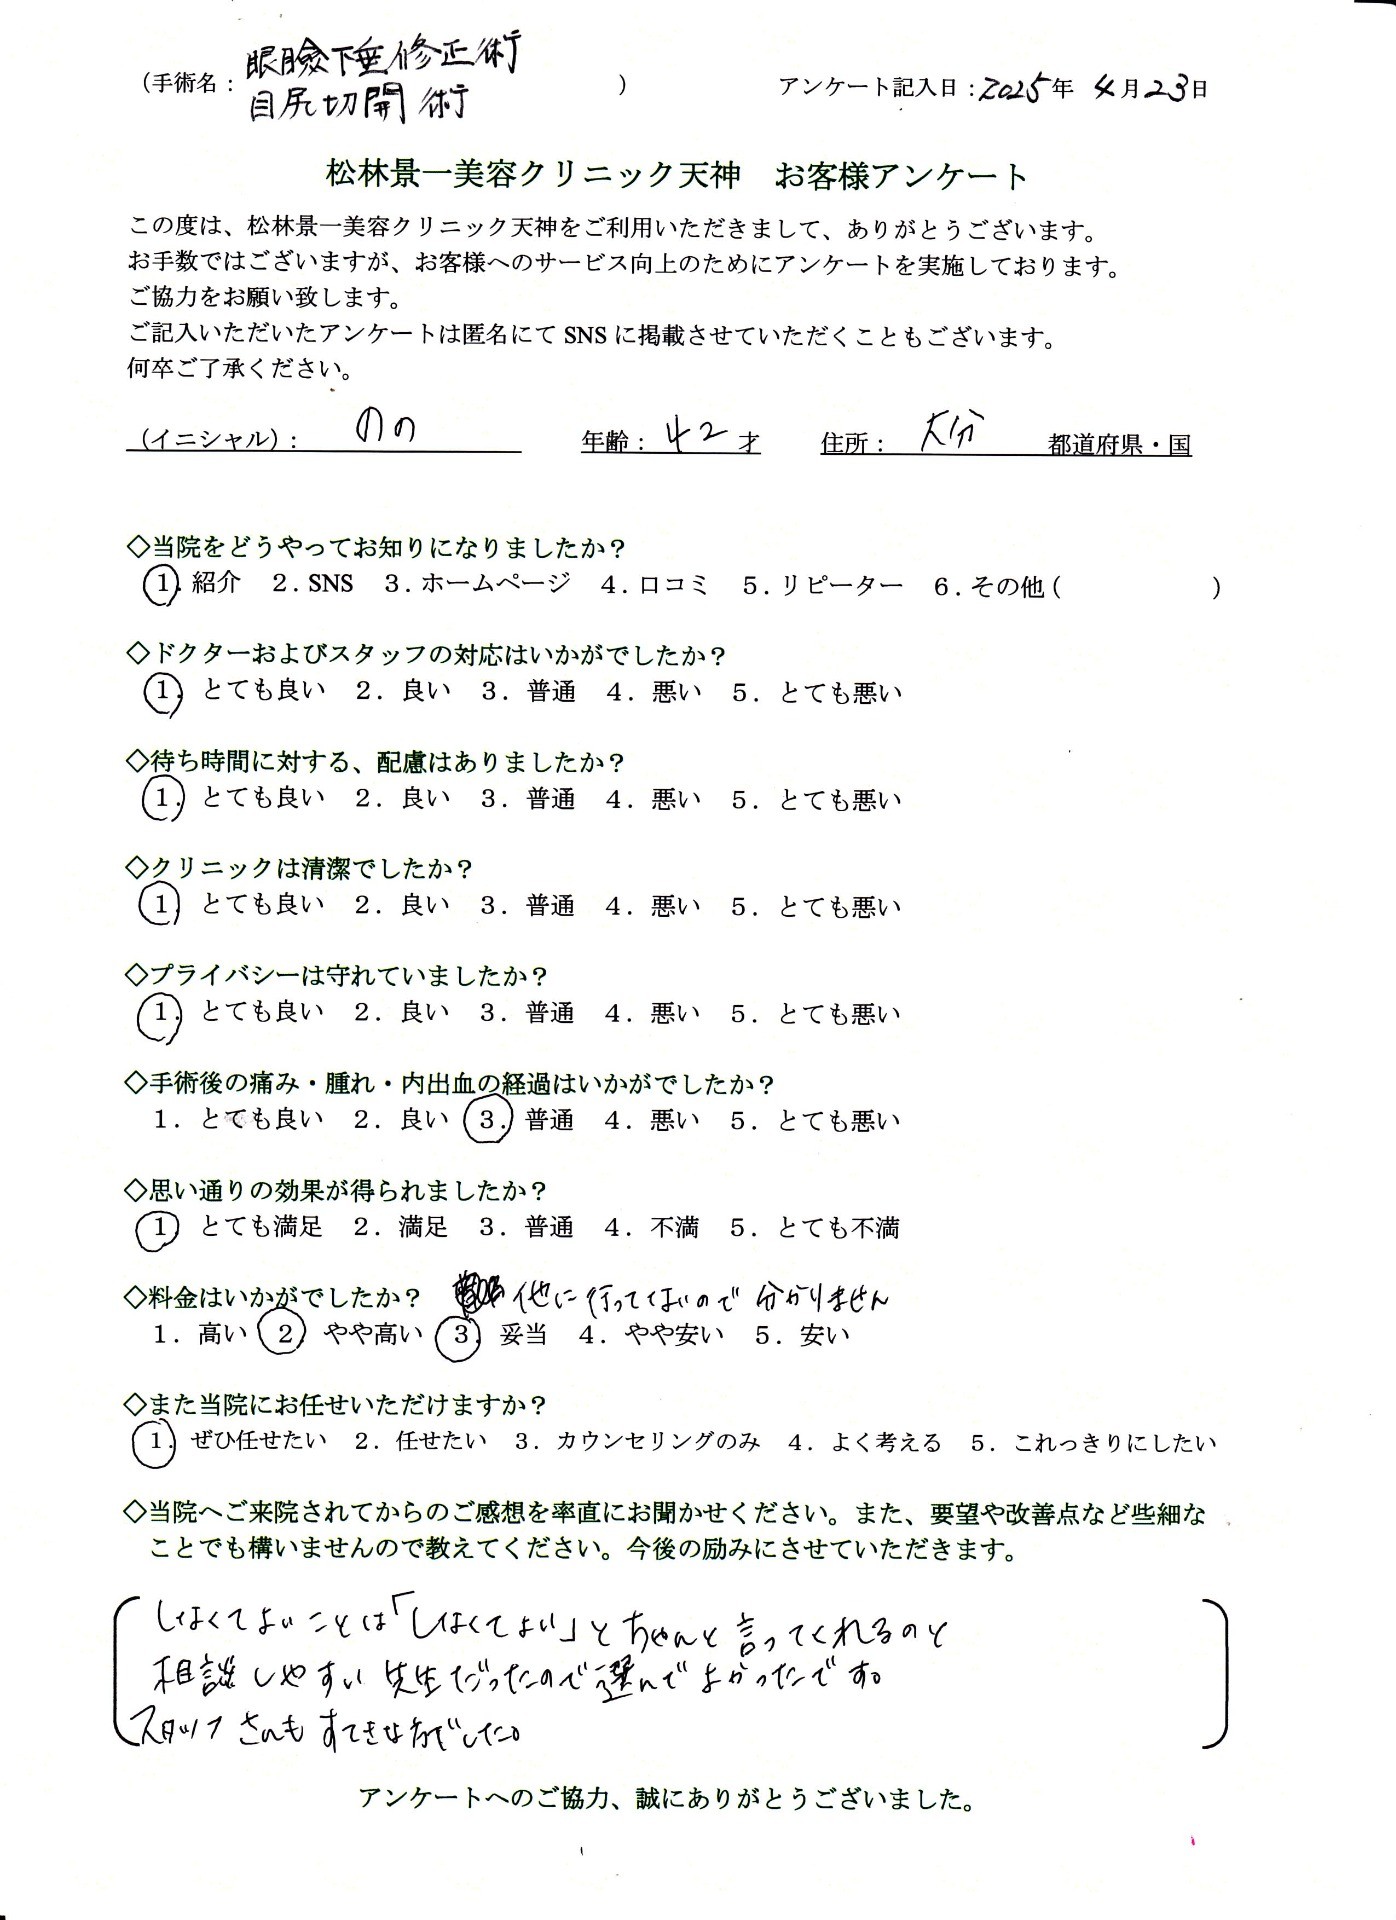 （手術名：眼瞼下垂修正術
目尻切開術　　　）　アンケート記入日：2025年 4月23日
松林景一美容クリニック天神　お客様アンケート
この度は、松林景一美容クリニック天神をご利用いただきまして、ありがとうございます。
お手数ではございますが、お客様へのサービス向上のためにアンケートを実施しております。
ご協力をお願い致します。
ご記入いただいたアンケートは匿名にて SNS に掲載させていただくこともございます。
何卒ご了承ください。
（イニシャル）：のの　年齢：42 才　住所：大分　都道府県・国
◇当院をどうやってお知りになりましたか？
1. 紹介　2. SNS　3. ホームページ　4. 口コミ　5. リピーター　6. その他（　　　）
◇ドクターおよびスタッフの対応はいかがでしたか？
1. とても良い　2. 良い　3. 普通　4. 悪い　5. とても悪い
◇待ち時間に対する、配慮はありましたか？
1. とても良い　2. 良い　3. 普通　4. 悪い　5. とても悪い
◇クリニックは清潔でしたか？
1. とても良い　2. 良い　3. 普通　4. 悪い　5. とても悪い
◇プライバシーは守れていましたか？
1. とても良い　2. 良い　3. 普通　4. 悪い　5. とても悪い
◇手術後の痛み・腫れ・内出血の経過はいかがでしたか？
1. とても良い　2. 良い　3. 普通　4. 悪い　5. とても悪い
◇思い通りの効果が得られましたか？
1. とても満足　2. 満足　3. 普通　4. 不満　5. とても不満
◇料金はいかがでしたか？　他に行ってないので分かりません
1. 高い　2. やや高い　3. 妥当　4. やや安い　5. 安い
◇また当院にお任せいただけますか？
1. ぜひ任せたい　2. 任せたい　3. カウンセリングのみ　4. よく考える　5. これっきりにしたい
◇当院へご来院されてからのご感想を率直にお聞かせください。また、要望や改善点など些細な
ことでも構いませんので教えてください。今後の励みにさせていただきます。
しなくてよいことは「しなくてよい」とちゃんと言ってくれるのと
相談しやすい先生だったので選んでよかったです。
スタッフさんもすてきな方でした。
アンケートへのご協力、誠にありがとうございました。